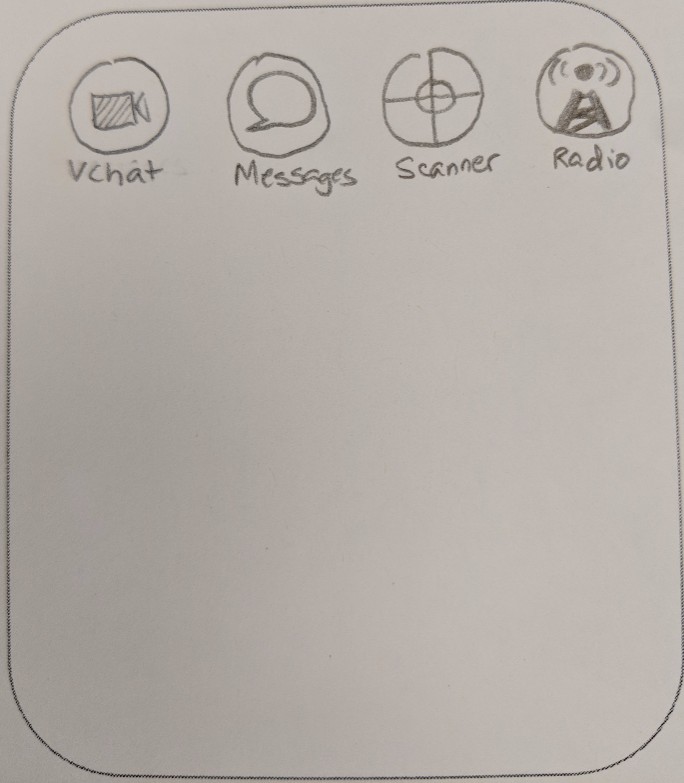 Vchat Messages Scanner Radio